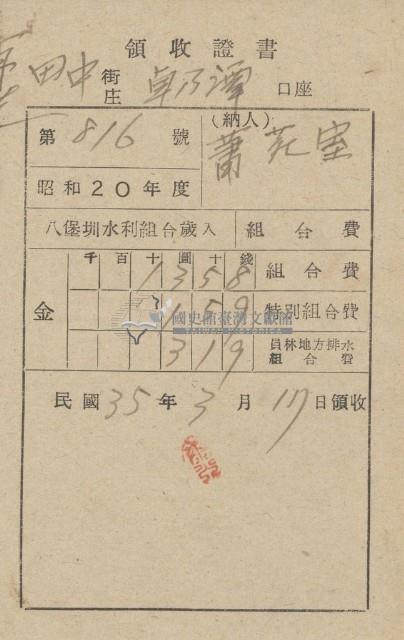 領收證書
田中 街庄 卓乃潭 口座
第 816 號
(納人)
蕭苑室
昭和20年度
八堡圳水利組合歲入 組合費
千百十圓十錢
金
1358 組合費
159 特別組合費
319 員林地方排水組合費
國史館臺灣文獻館
TAIWAN HISTORICA
民國35年3月17日領收